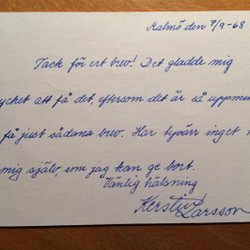 Malmö den 7/9-68
Tack för ert brev! Det gladde mig
ycket att få det, eftersom det är så uppmu
få just sådana brev. Har tyvärr inget
mig själv som jag kan ge bort.
Vänlig hälsning
Kerstin Larsson